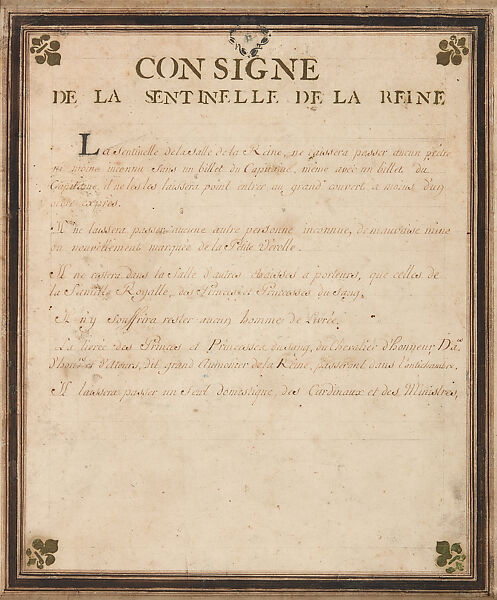 CONSIGNE
DE LA SENTINELLE DE LA REINE
La Sentinelle de la Salle de la Reine, ne laissera passer aucun prêtre
ni moine inconnu sans un billet du Capitaine, même avec un billet du
Capitaine, il ne les laissera point entrer au grand couvert a moins d'un
ordre exprès.
Il ne laissera passer aucune autre personne inconnue, de mauvaise mine
ou nouvellement marquée de la Petite Verolle.
Il ne restera dans la Salle d'autres chaises a porteurs, que celles de
la Famille Royalle, des Princes et Princesses du Sang.
Il n'y souffrira rester aucun homme de Livrée.
La livrée des Princes et Princesses du Sang, du Chevalier d'honneur, Da.
d'hon.r et d'Atours, du grand Aumonier de la Reine, passeront dans l'antichambre.
Il laissera passer un Seul domestique, des Cardinaux et des Ministres,